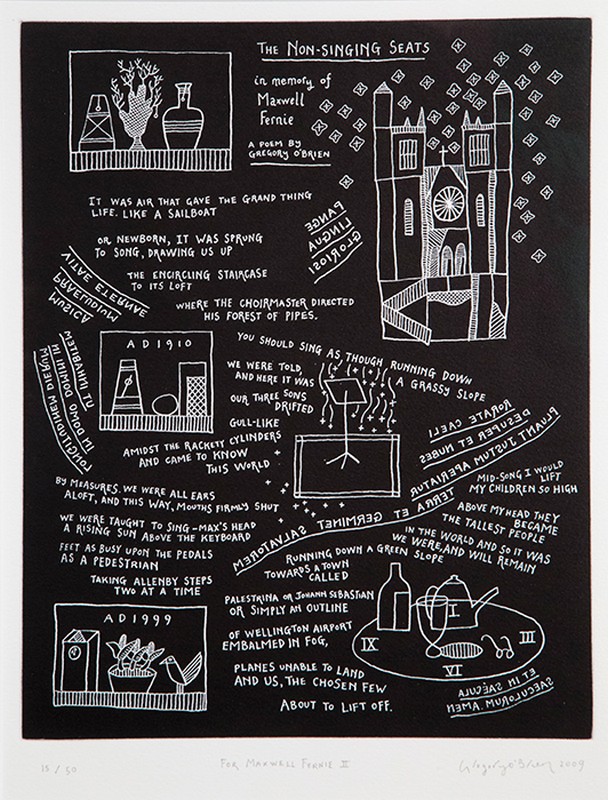 THE NON-SINGING SEATS
in memory of
Maxwell
Fernie
A POEM BY
GREGORY O'BRIEN
IT WAS AIR THAT GAVE THE GRAND THING
LIFE. LIKE A SAILBOAT
OR NEWBORN, IT WAS SPRUNG
TO SONG, DRAWING US UP
THE ENCIRCLING STAIRCASE
TO ITS LOFT
WHERE THE CHOIRMASTER DIRECTED
HIS FOREST OF PIPES.
PANGE
LINGUA
GLORIOSI
MUSICA
PRAELUDIUM
VITAE ETERNAE
AD1910
UT INHABITEM
IN DOMO DOMINI IN
LONGITUDINEM DIERUM
YOU SHOULD SING AS THOUGH RUNNING DOWN
A GRASSY SLOPE
WE WERE TOLD,
AND HERE IT WAS
OUR THREE SONS
DRIFTED
GULL-LIKE
AMIDST THE RACKETY CYLINDERS
AND CAME TO KNOW
THIS WORLD
BY MEASURES. WE WERE ALL EARS
ALOFT, AND THIS WAY, MOUTHS FIRMLY SHUT
WE WERE TAUGHT TO SING – MAX'S HEAD
A RISING SUN ABOVE THE KEYBOARD
FEET AS BUSY UPON THE PEDALS
AS A PEDESTRIAN
TAKING ALLENBY STEPS
TWO AT A TIME
RORATE CAELI
DESUPER ET NUBES
PLUANT JUSTUM APERIATUR
TERRA ET GERMINET SALVATOREM
MID-SONG I WOULD
LIFT
MY CHILDREN SO HIGH
ABOVE MY HEAD THEY
BECAME
THE TALLEST PEOPLE
IN THE WORLD AND SO IT WAS
WE WERE, AND WILL REMAIN
RUNNING DOWN A GREEN SLOPE
TOWARDS A TOWN
CALLED
PALESTRINA OR JOHANN SEBASTIAN
OR SIMPLY AN OUTLINE
OF WELLINGTON AIRPORT
EMBALMED IN FOG,
PLANES UNABLE TO LAND
AND US, THE CHOSEN FEW
ABOUT TO LIFT OFF.
AD1999
I
III
VI
IX
ET IN SAECULA
SAECULORUM. AMEN.
15/50
FOR MAXWELL FERNIE II
Gregory O'Brien 2009